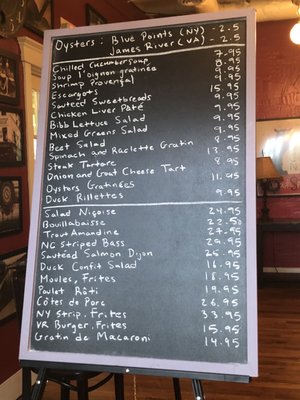 Oysters: Blue Points (NY) - 2.5
James River (VA) - 2.5
Chilled Cucumber Soup 7.95
Soup l'oignon gratinée 8.95
Shrimp Provençal 9.95
Escargots 9.95
Sauteed Sweetbreads 15.95
Chicken Liver Paté 9.95
Bibb Lettuce Salad 9.95
Mixed Greens Salad 9.95
Beet Salad 9.95
Spinach and Raclette Gratin 8.95
Steak Tartare 13.95
Onion and Goat Cheese Tart 8.95
Oysters Gratinées 11.95
Duck Rillettes 9.95
Salad Niçoise 24.95
Bouillabaisse 22.50
Trout Amandine 27.95
NC Striped Bass 29.95
Sautéed Salmon Dijon 25.95
Duck Confit Salad 16.95
Moules, Frites 18.95
Poulet Rôti 19.95
Côtes de Porc 26.95
NY Strip, Frites 33.95
VR Burger, Frites 15.95
Gratin de Macaroni 14.95